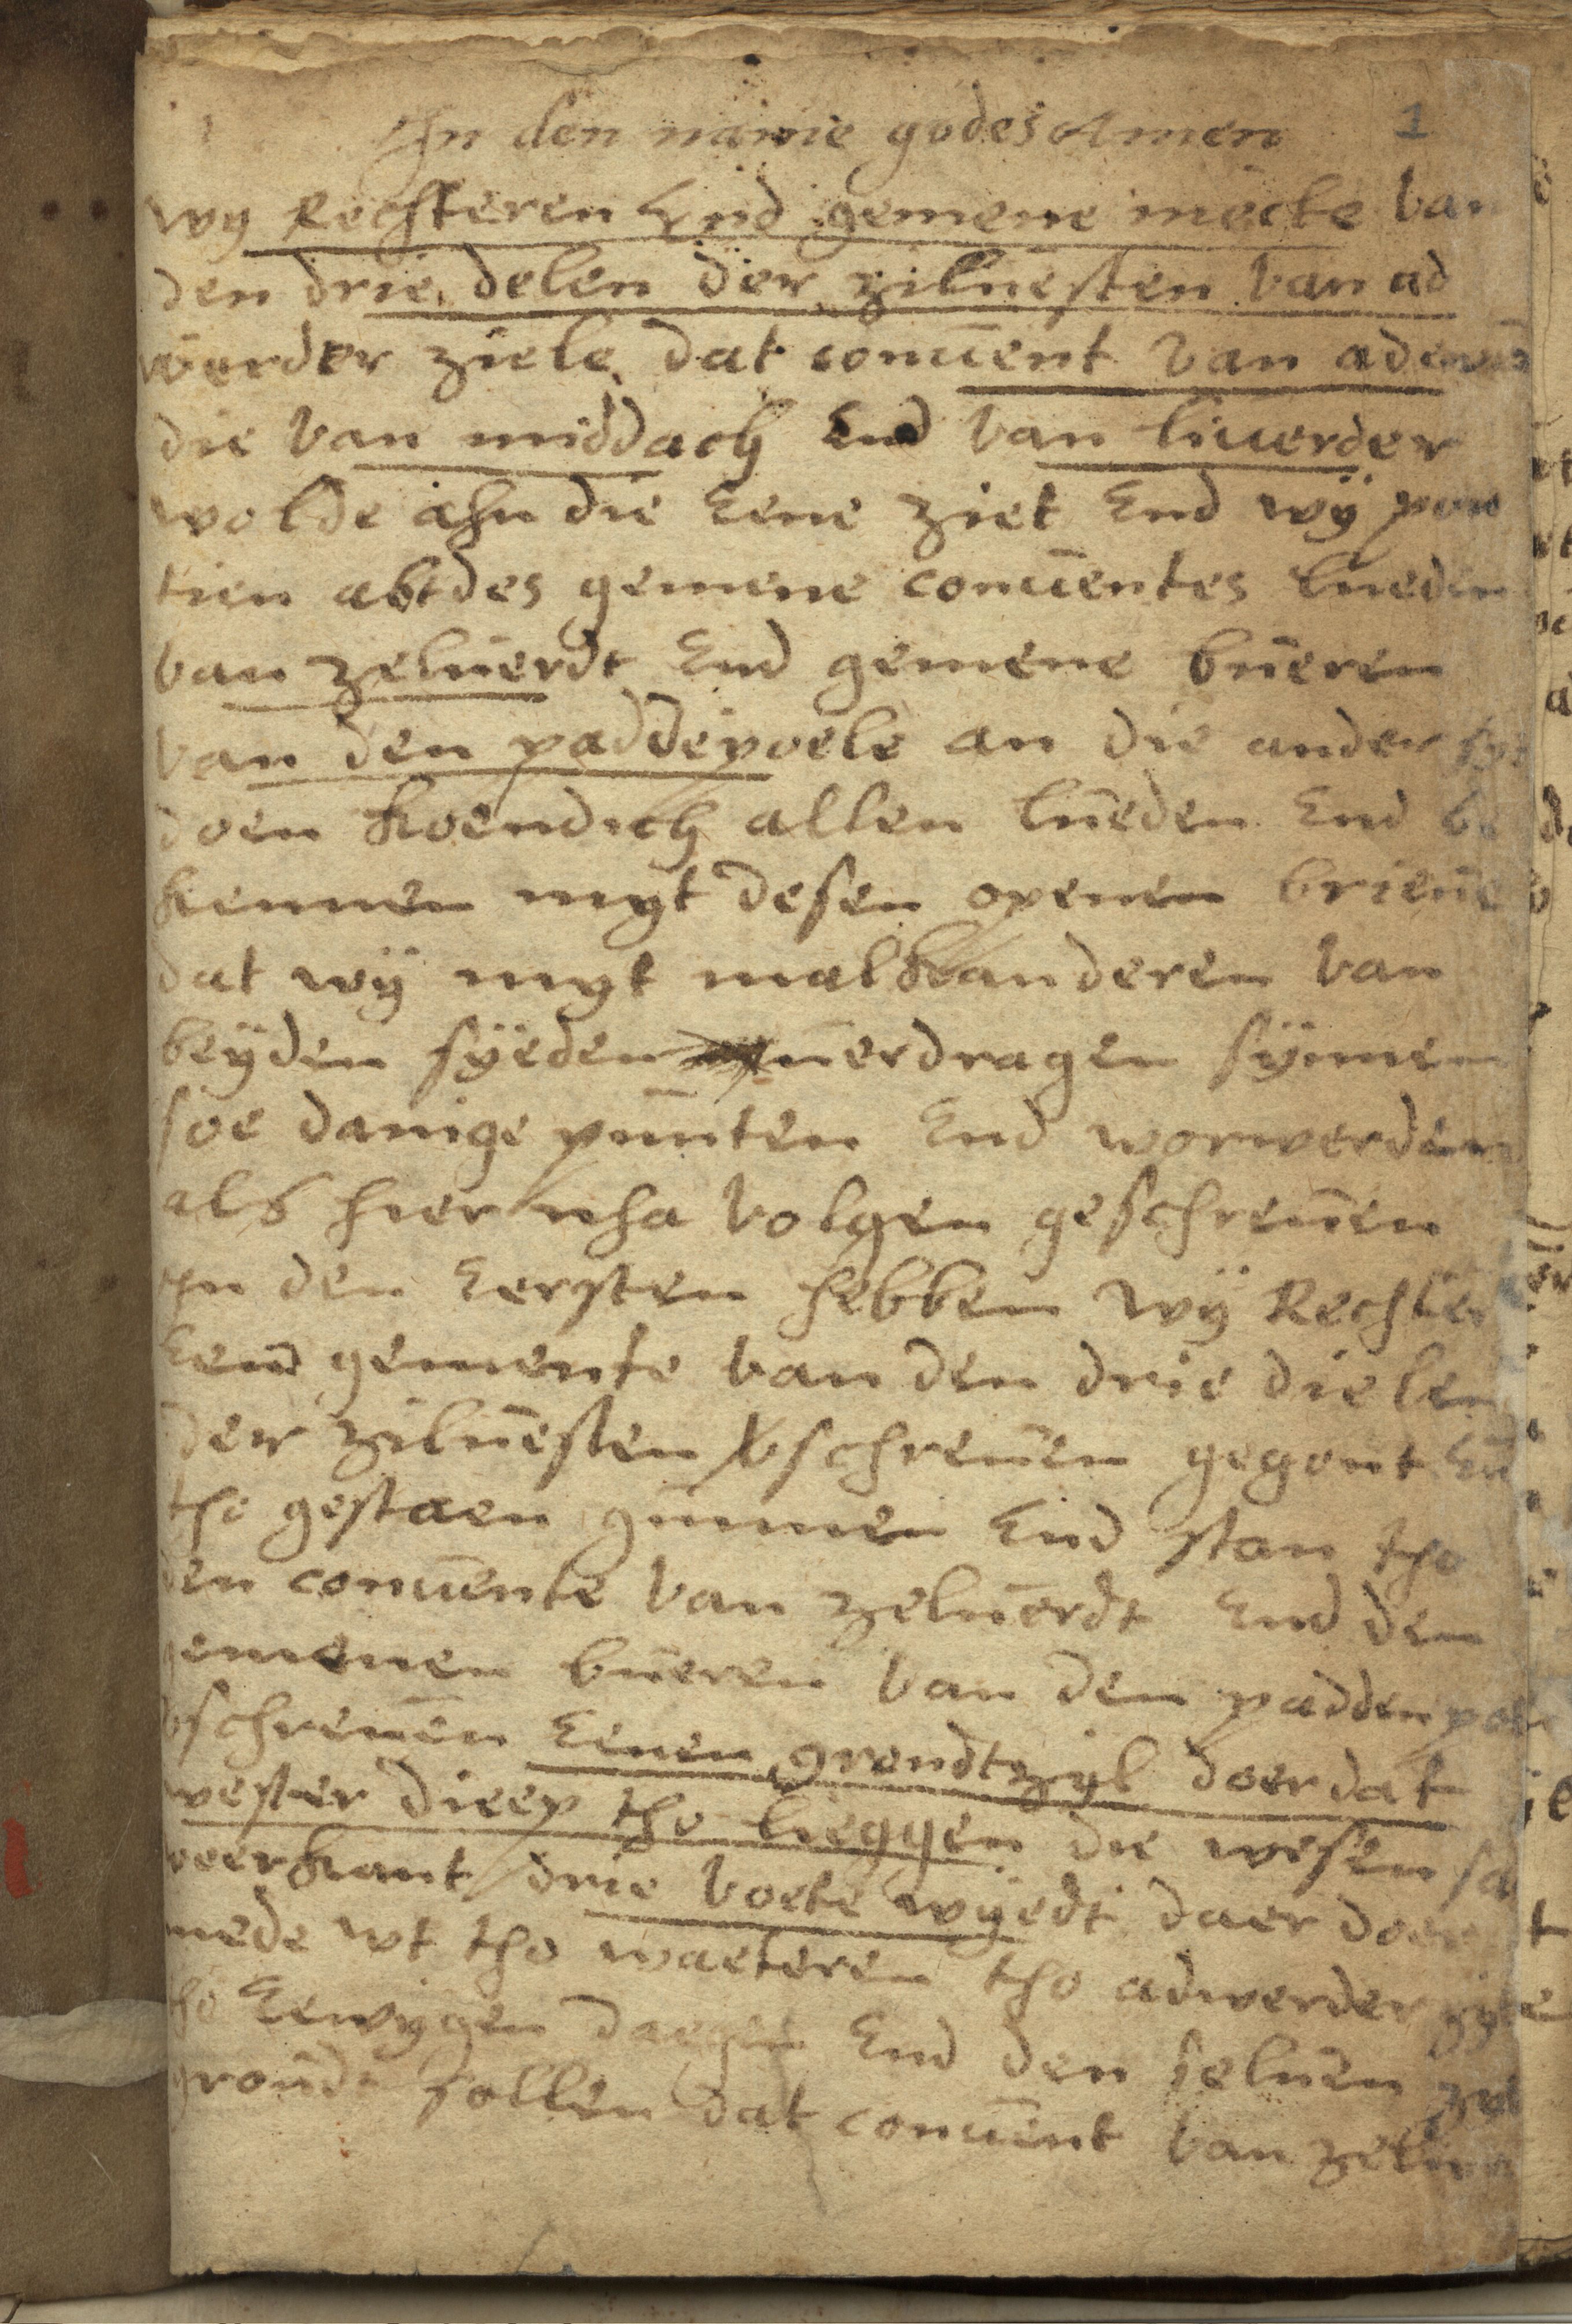 In den name godes Amen 1
wy Rechteren End gemene mecte van
den drie delen der ziluesten van ad
werder ziele dat conuent van adewerd
die van middach End van liuerder
wolde ahn die eene ziet End wÿ pon
tien abt des gemene conuentes lueden
van zeluerdt End gemene bueren
van den paddepoele an die ander syt
doen koendich allen lueden End be
kennen myt desen openen brieue
dat wÿ myt malkanderen van
beÿden sÿeden uerdragen sÿnnen
soe danige punten End worwerden
als hier nha volgen geschreuen
In den Eersten hebben wÿ Rechter
Eend gemente van den drie dielen
der ziluesten vschreuen gegont En
tho gestaen gunnen End stan tho
den conuente van zeluerdt End den
gemenen bueren van den paddenpoel
vschreuen Eenen grondtzyl doer dat
wester dieep tho lieggen die wesen sal
veerkant drie voete wÿedt daer doer
mede wt tho waeteren tho adwerder zyle
tho Eewygen daegen End den seluen zyl
grondt sollen dat conuent van zeluer